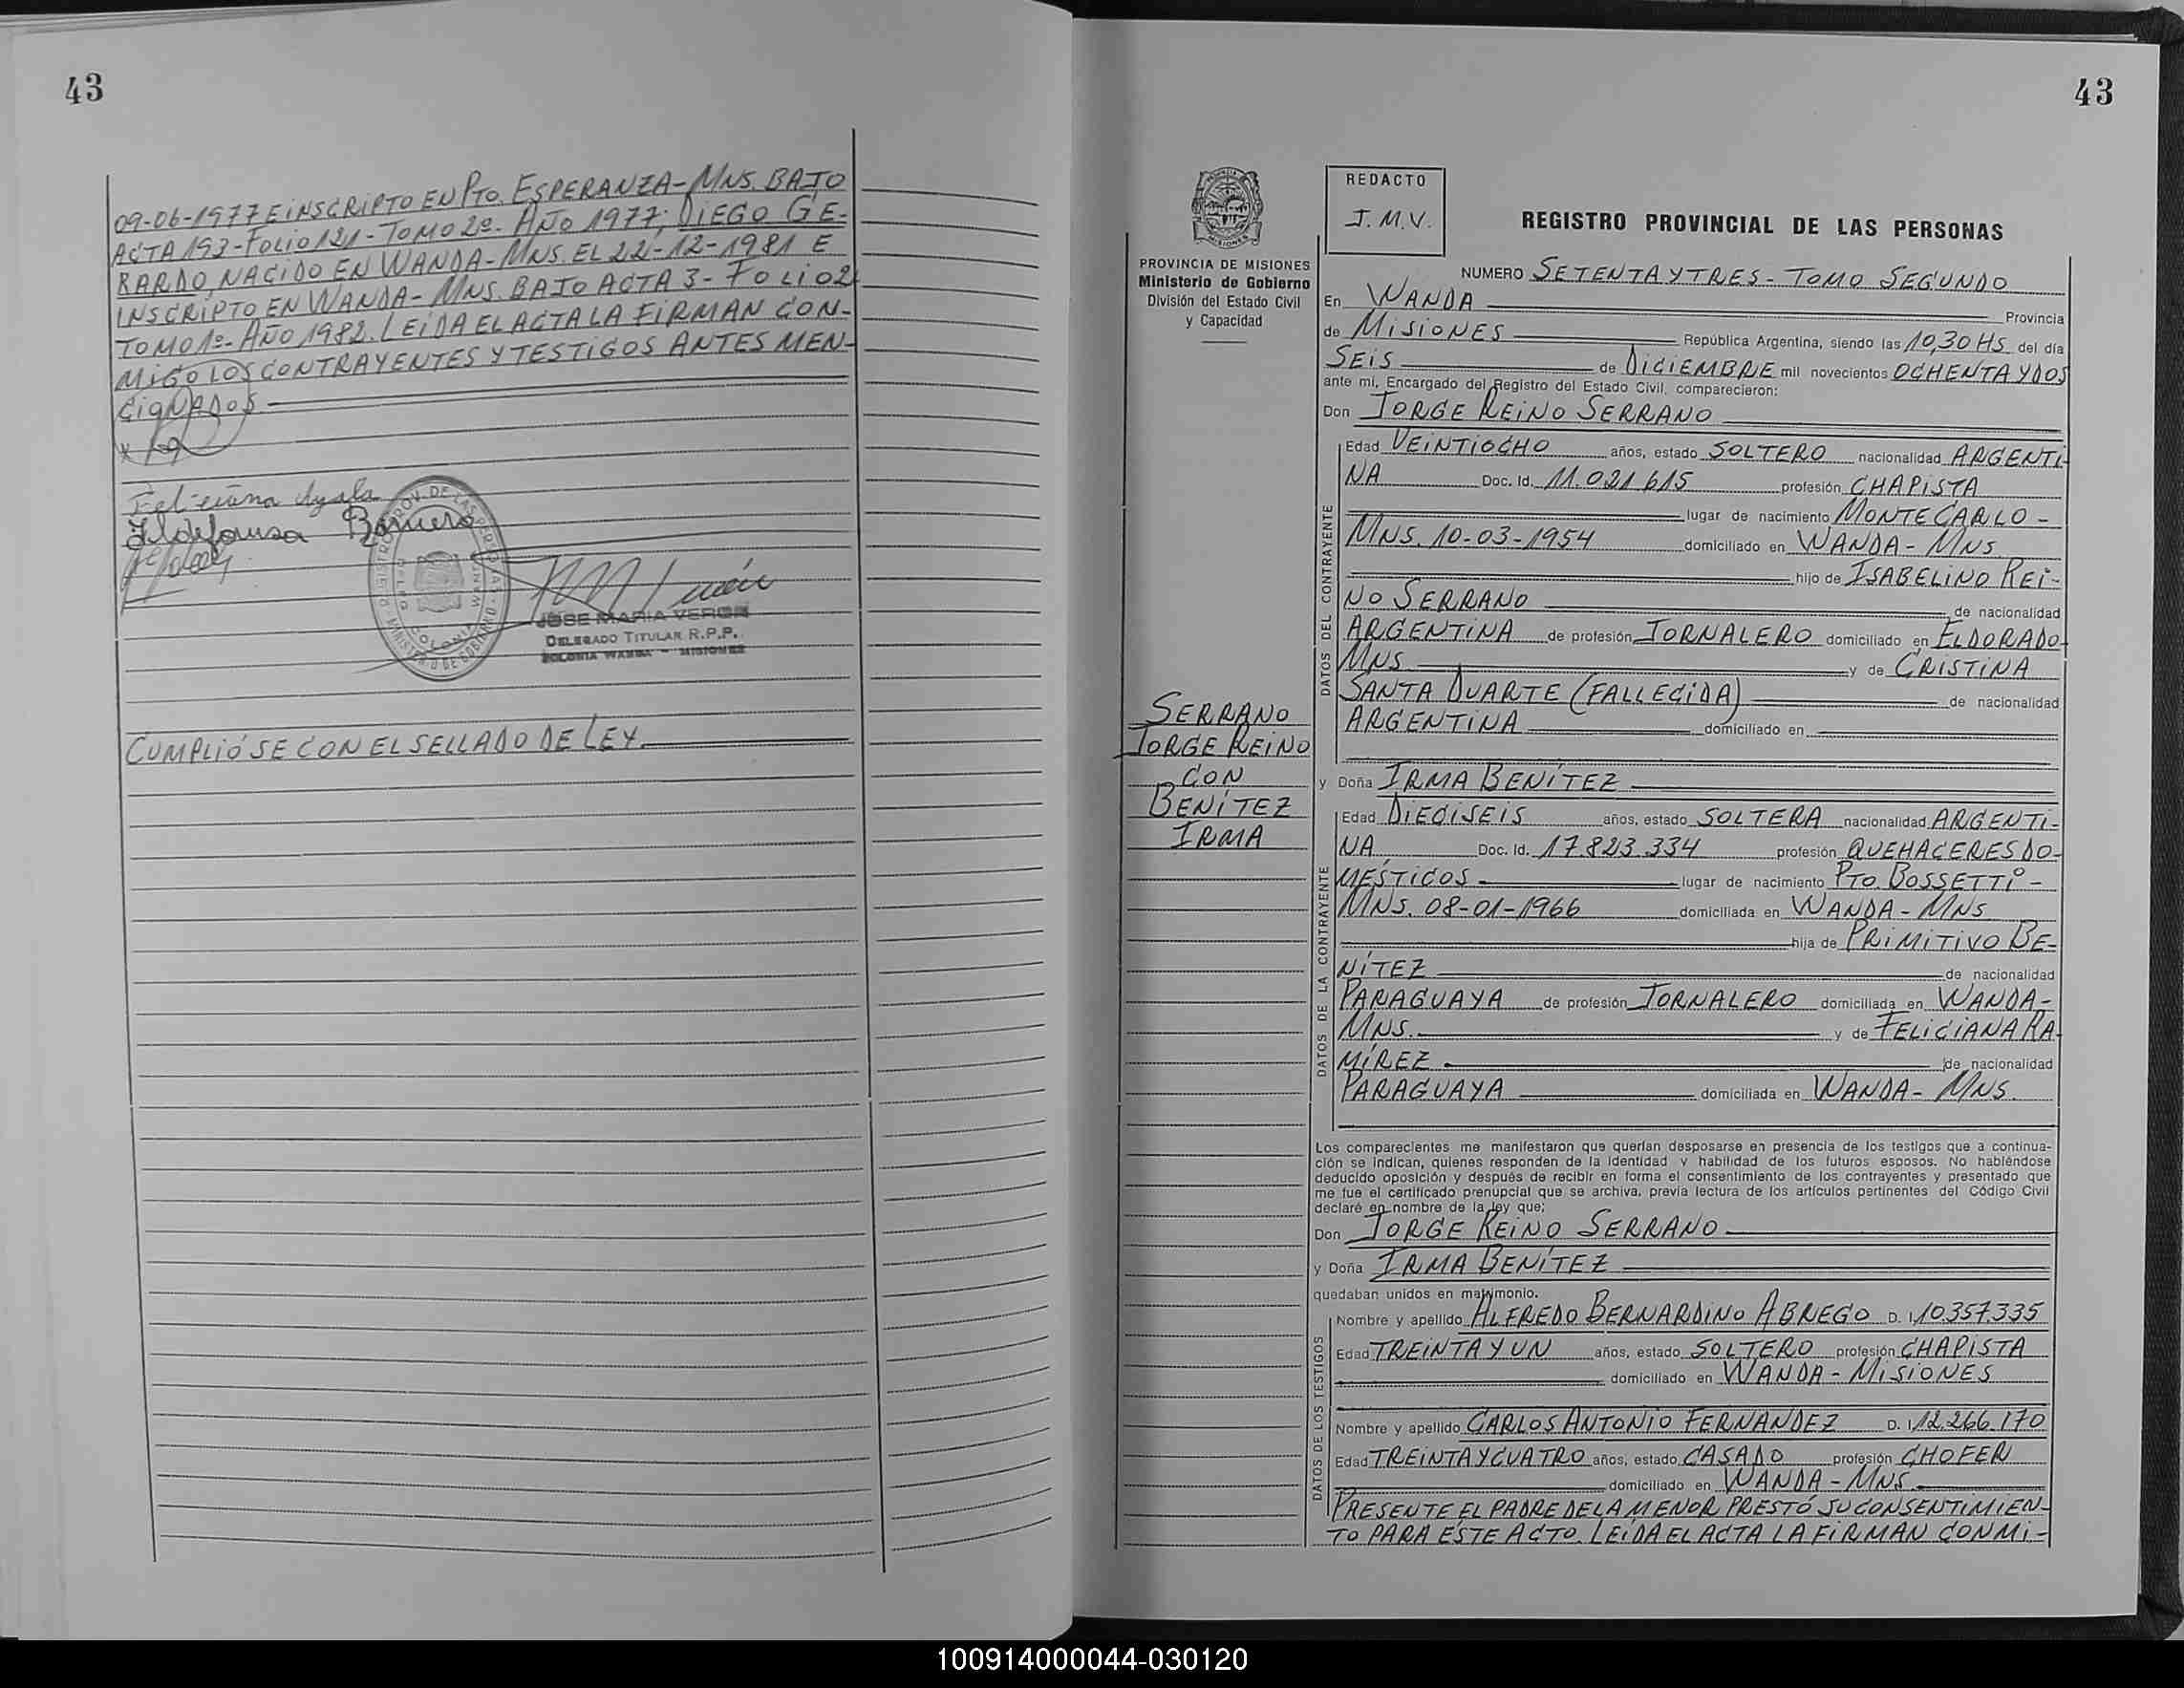 43
09-06-1977 E INSCRIPTO EN PTO. ESPERANZA-MNS. BAJO
ACTA 193-FOLIO 121-TOMO 2º-AÑO 1977; DIEGO GE-
RARDO, NACIDO EN WANDA-MNS. EL 22-12-1981 E
INSCRIPTO EN WANDA-MNS. BAJO ACTA 3-FOLIO 2
TOMO 1º-AÑO 1982. LEÍDA EL ACTA LA FIRMAN CON-
MIGO LOS CONTRAYENTES Y TESTIGOS ANTES MEN-
CIONADOS
Feliciana Ayala
Ildefonsa Romero
JOSE MARIA VERON
DELEGADO TITULAR R.P.P.
COLONIA WANDA - MISIONES
CUMPLIÓSE CON EL SELLADO DE LEY.
43
PROVINCIA DE MISIONES
Ministerio de Gobierno
División del Estado Civil
y Capacidad
SERRANO
JORGE REINO
CON
BENÍTEZ
IRMA
REDACTO
J.M.V.
REGISTRO PROVINCIAL DE LAS PERSONAS
NUMERO SETENTA Y TRES - TOMO SEGUNDO
En WANDA Provincia
de MISIONES República Argentina, siendo las 10,30 HS. del día
SEIS de DICIEMBRE mil novecientos OCHENTA Y DOS
ante mi, Encargado del Registro del Estado Civil, comparecieron:
Don JORGE REINO SERRANO
DATOS DEL CONTRAYENTE
Edad VEINTIOCHO años, estado SOLTERO nacionalidad ARGENTI-
NA Doc. Id. 11.021.615 profesión CHAPISTA
lugar de nacimiento MONTECARLO -
MNS. 10-03-1954 domiciliado en WANDA - MNS
hijo de ISABELINO REI-
NO SERRANO de nacionalidad
ARGENTINA de profesión JORNALERO domiciliado en ELDORADO-
MNS y de CRISTINA
SANTA DUARTE (FALLECIDA) de nacionalidad
ARGENTINA domiciliado en
y Doña IRMA BENÍTEZ
DATOS DE LA CONTRAYENTE
Edad DIECISEIS años, estado SOLTERA nacionalidad ARGENTI-
NA Doc. Id. 17.823.334 profesión QUEHACERES DO-
MÉSTICOS lugar de nacimiento PTO. BOSSETTI -
MNS. 08-01-1966 domiciliada en WANDA - MNS
hija de PRIMITIVO BE-
NÍTEZ de nacionalidad
PARAGUAYA de profesión JORNALERO domiciliada en WANDA-
MNS. y de FELICIANA RA-
MÍREZ de nacionalidad
PARAGUAYA domiciliada en WANDA - MNS.
Los comparecientes me manifestaron que querían desposarse en presencia de los testigos que a continua-
ción se indican, quienes responden de la identidad y habilidad de los futuros esposos. No habiéndose
deducido oposición y después de recibir en forma el consentimiento de los contrayentes y presentado que
me fue el certificado prenupcial que se archiva, previa lectura de los artículos pertinentes del Código Civil
declaré en nombre de la ley que;
Don JORGE REINO SERRANO
y Doña IRMA BENÍTEZ
quedaban unidos en matrimonio.
DATOS DE LOS TESTIGOS
Nombre y apellido ALFREDO BERNARDINO ABREGO D. I. 10.357.335
Edad TREINTA Y UN años, estado SOLTERO profesión CHAPISTA
domiciliado en WANDA - MISIONES
Nombre y apellido CARLOS ANTONIO FERNANDEZ D. I. 12.266.170
Edad TREINTA Y CUATRO años, estado CASADO profesión CHOFER
domiciliado en WANDA - MNS
PRESENTE EL PADRE DE LA MENOR PRESTÓ SU CONSENTIMIEN-
TO PARA ESTE ACTO. LEÍDA EL ACTA LA FIRMAN CONMI-
100914000044-030120